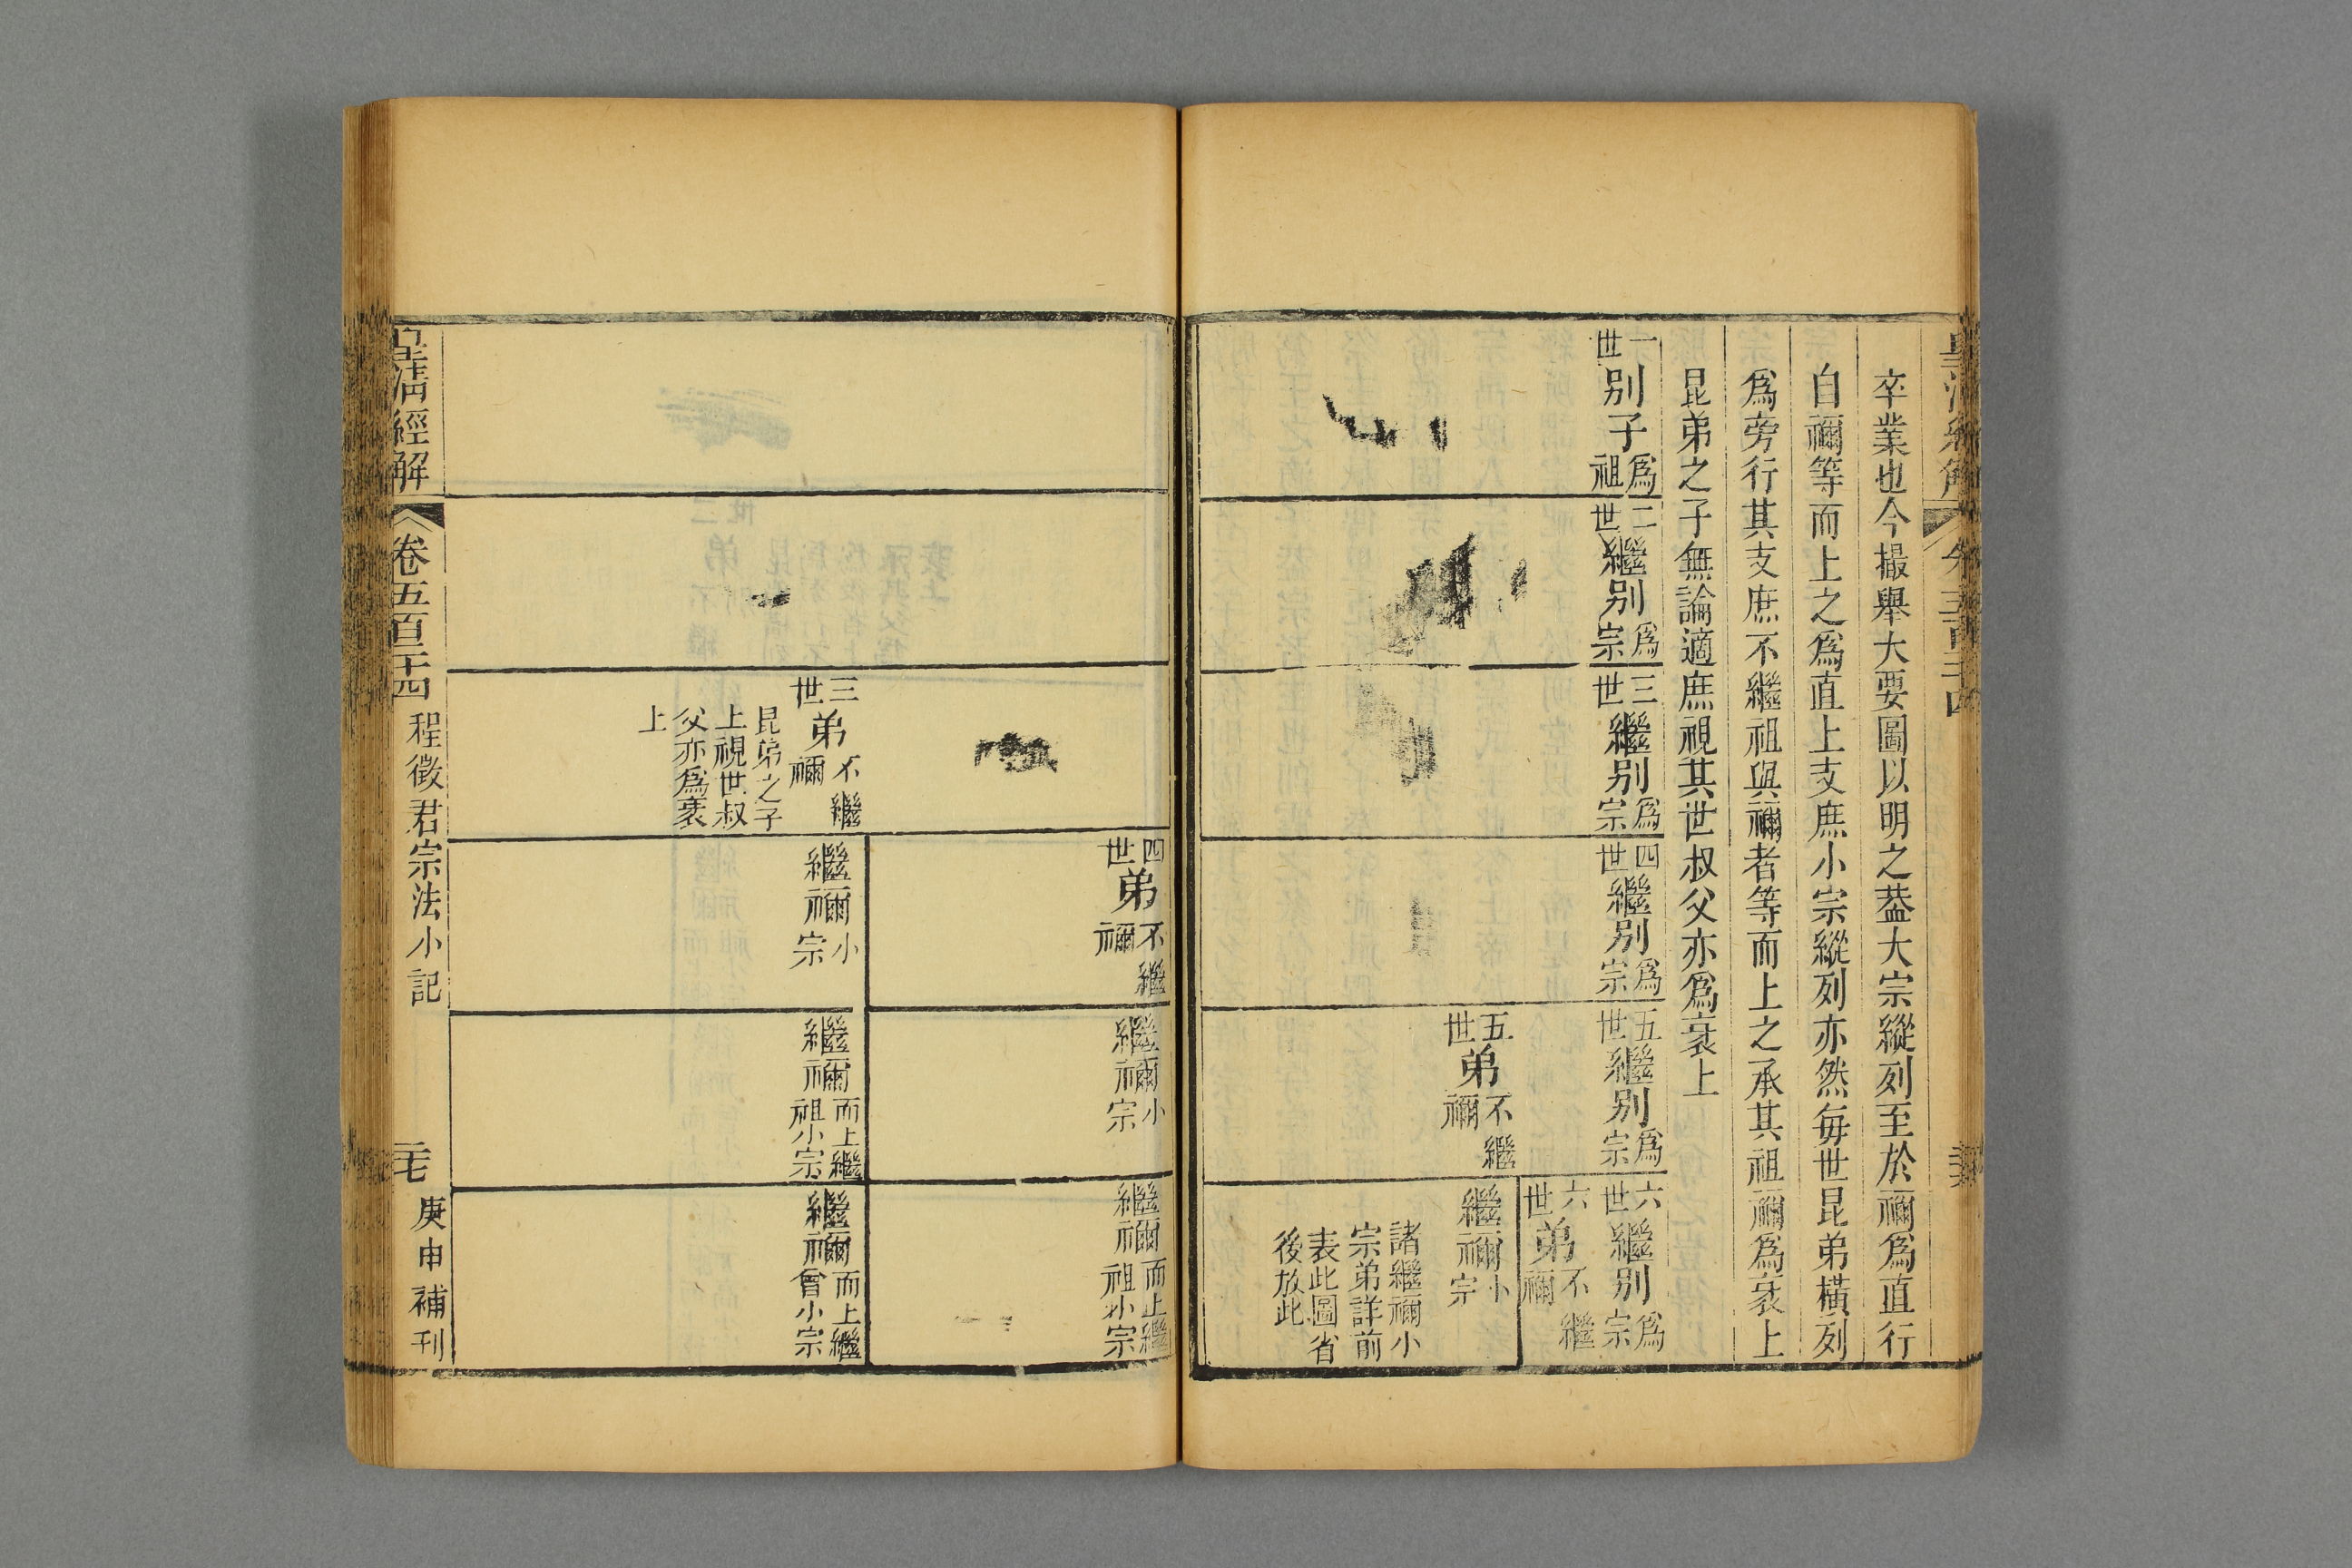 卒業也今撮舉大要圖以明之葢大宗縱列至於禰爲直行
自禰等而上之爲直上支庶小宗縱列亦然每世昆弟橫列
爲旁行其支庶不繼祖與禰者等而上之承其祖禰爲衺上
昆弟之子無論適庶視其世叔父亦爲衺上
一世別子爲祖
二世繼別爲宗
三世繼別爲宗
四世繼別爲宗
五世繼別爲宗
五世弟不繼禰
六世繼別爲宗
六世弟不繼禰
繼禰小宗
諸繼禰小
宗弟詳前
表此圖省
後放此
四世弟不繼禰
繼禰小宗
繼禰而上繼祖小宗
三世弟不繼禰
昆弟之子
上視世叔
父亦爲衺
上
繼禰小宗
繼禰而上繼祖小宗
繼禰而上繼曾小宗
皇清經解
卷五百二十四
程徵君宗法小記
二七
庚申補刊